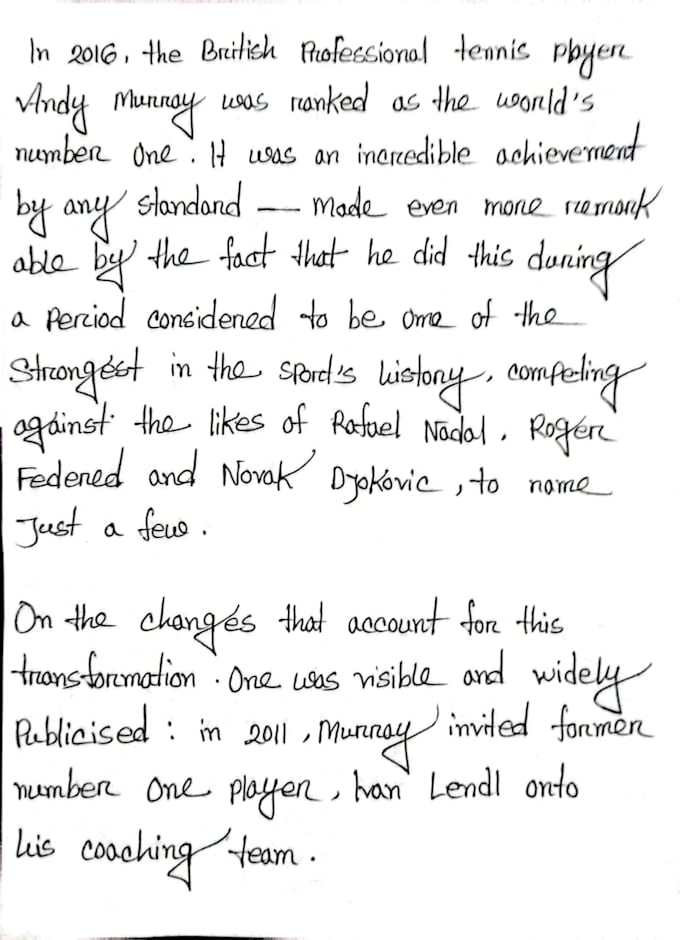 In 2016, the British Professional tennis player
Andy Murray was ranked as the world's
number One. It was an incredible achievement
by any standard — Made even more remark
able by the fact that he did this during
a Period considered to be one of the
Strongest in the sport's history, competing
against the likes of Rafael Nadal, Roger
Federed and Novak Djokovic, to name
Just a few.
On the changes that account for this
transformation. One was visible and widely
Publicised: in 2011, Murray invited former
number One player, Ivan Lendl onto
his coaching team.